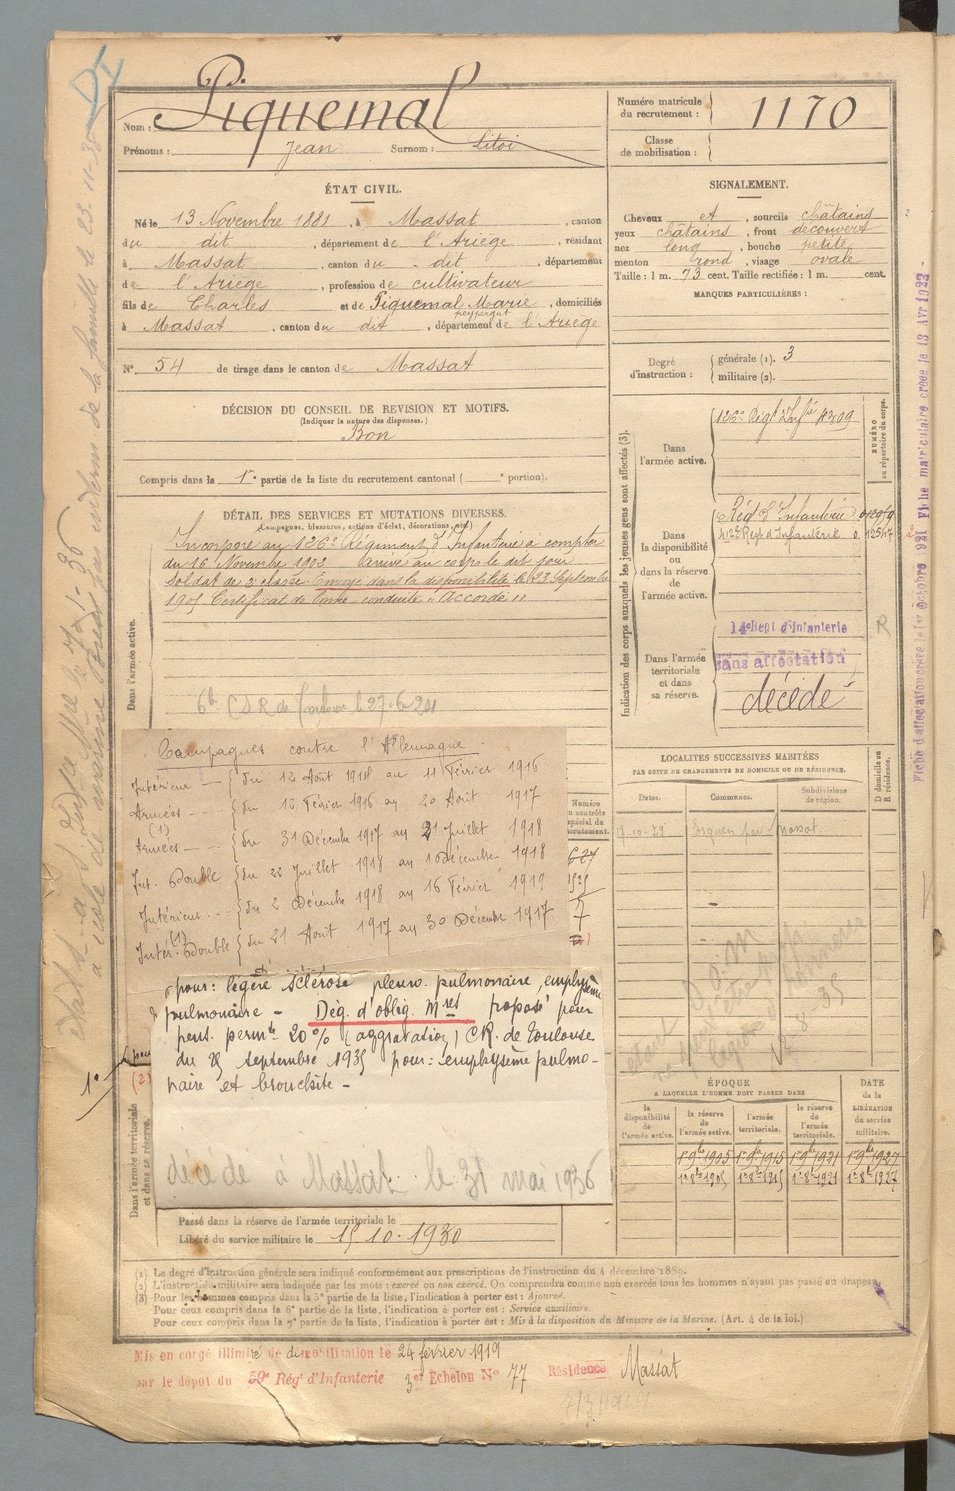 Nom : Piquemal
Prénoms : Jean Surnom : Litoi
Numéro matricule du recrutement : 1170
Classe de mobilisation :
ÉTAT CIVIL.
Né le 13 Novembre 1881, à Massat, canton
du dit, département de l'Ariège, résidant
à Massat, canton du dit, département
de l'Ariège, profession de cultivateur
fils de Charles et de Piquemal Marie, domiciliés
à Massat, canton du dit, département de l'Ariège
N° 54 de tirage dans le canton de Massat
SIGNALEMENT.
Cheveux et, sourcils châtains
yeux châtains, front découvert
nez long, bouche petite
menton rond, visage ovale
Taille : 1 m. 73 cent. Taille rectifiée : 1 m. cent.
MARQUES PARTICULIÈRES :
Degré d'instruction : générale (1). 3
militaire (2).
DÉCISION DU CONSEIL DE REVISION ET MOTIFS.
(Indiquer la nature des dispenses.)
Bon
Compris dans la 1re partie de la liste du recrutement cantonal ( e portion).
DÉTAIL DES SERVICES ET MUTATIONS DIVERSES.
(Campagnes, blessures, actions d'éclat, décorations, etc.)
Incorporé au 126e Régiment d'Infanterie à compter
du 16 Novembre 1902. Arrivé au corps le dit jour
soldat de 2e classe Envoyé dans la disponibilité le 23 Septembre
1905 Certificat de bonne conduite "Accordé"
Dans l'armée active.
6e C.S.R. de Toulouse le 27-6-24
Indication des corps auxquels les jeunes gens sont affectés (3).
NUMÉRO au répertoire du corps.
Dans l'armée active.
126e Régt d'Infie 4309
Dans la disponibilité ou dans la réserve de l'armée active.
Régt d'Infanterie
Regt d'Infanterie
Dans l'armée territoriale et dans sa réserve.
14e Regt d'Infanterie R
sans affectation
décédé
Campagnes contre l'Allemagne
Intérieur - du 12 Août 1914 au 11 Février 1916
Armées - du 12 Février 1916 au 20 Août 1917
(1)
Armées - du 31 Décembre 1917 au 21 Juillet 1918
Int. Double du 22 Juillet 1918 au 1 Décembre 1918
Intérieur - du 2 Décembre 1918 au 16 Février 1919
(1)
Intér. Double du 21 Août 1917 au 30 Décembre 1917
pour : légère sclérose pleuro pulmonaire, emphysème
pulmonaire - Dég. d'oblig. Mres proposé pour
pens. permte 20 % (aggravation) CR. de Toulouse
du 25 septembre 1935 pour : emphysème pulmo-
naire et bronchite -
décédé à Massat le 31 mai 1936
LOCALITES SUCCESSIVES HABITÉES
PAR SUITE DE CHANGEMENTS DE DOMICILE OU DE RÉSIDENCE.
Dates. Communes. Subdivisions de région. D domicile ou R résidence.
Massat
ÉPOQUE
A LAQUELLE L'HOMME DOIT PASSER DANS
la disponibilité de l'armée active. la réserve de l'armée active. l'armée territoriale. la réserve de l'armée territoriale. DATE de la LIBÉRATION du service militaire.
1er 9bre 1905 1er 9bre 1915 1er 9bre 1921 1er 9bre 1927
1er 8bre 1905 1er 8bre 1915 1er 8bre 1921 1er 8bre 1927
Dans l'armée territoriale et dans sa réserve.
Passé dans la réserve de l'armée territoriale le
Libéré du service militaire le 15 10. 1930
(1) Le degré d'instruction générale sera indiqué conformément aux prescriptions de l'instruction du 4 décembre 1889.
(2) L'instruction militaire sera indiquée par les mots : exercé ou non exercé. On comprendra comme non exercés tous les hommes n'ayant pas passé au drapeau.
(3) Pour les hommes compris dans la 5e partie de la liste, l'indication à porter est : Ajourné.
Pour ceux compris dans la 6e partie de la liste, l'indication à porter est : Service auxiliaire.
Pour ceux compris dans la 7e partie de la liste, l'indication à porter est : Mis à la disposition du Ministre de la Marine. (Art. 4 de la loi.)
Mis en congé illimité de démobilisation le 24 février 1919
par le dépot du 59e Régt d'Infanterie 3er Echelon N° 77 Résidence Massat
Fiche matriculaire créée le 13 Avr 1923 -